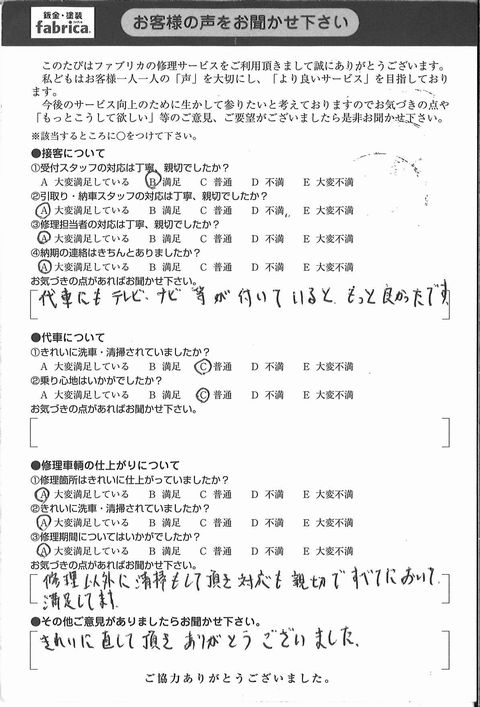 鈑金・塗装
fabrica.
お客様の声をお聞かせ下さい
このたびはファブリカの修理サービスをご利用頂きまして誠にありがとうございます。
私どもはお客様一人一人の「声」を大切にし、「より良いサービス」を目指しており
ます。
今後のサービス向上のために生かして参りたいと考えておりますのでお気づきの点や
「もっとこうして欲しい」等のご意見、ご要望がございましたら是非お聞かせ下さい。
※該当するところに○をつけて下さい。
●接客について
①受付スタッフの対応は丁寧、親切でしたか？
A 大変満足している B 満足 C 普通 D 不満 E 大変不満
②引取り・納車スタッフの対応は丁寧、親切でしたか？
A 大変満足している B 満足 C 普通 D 不満 E 大変不満
③修理担当者の対応は丁寧、親切でしたか？
A 大変満足している B 満足 C 普通 D 不満 E 大変不満
④納期の連絡はきちんとありましたか？
A 大変満足している B 満足 C 普通 D 不満 E 大変不満
お気づきの点があればお聞かせ下さい。
代車にもテレビ、ナビ 等が付いていると、もっと良かったです
●代車について
①きれいに洗車・清掃されていましたか？
A 大変満足している B 満足 C 普通 D 不満 E 大変不満
②乗り心地はいかがでしたか？
A 大変満足している B 満足 C 普通 D 不満 E 大変不満
お気づきの点があればお聞かせ下さい。
●修理車輌の仕上がりについて
①修理箇所はきれいに仕上がっていましたか？
A 大変満足している B 満足 C 普通 D 不満 E 大変不満
②きれいに洗車・清掃されていましたか？
A 大変満足している B 満足 C 普通 D 不満 E 大変不満
③修理期間についてはいかがでしたか？
A 大変満足している B 満足 C 普通 D 不満 E 大変不満
お気づきの点があればお聞かせ下さい。
修理以外に清掃もして頂き対応も親切ですべてにおいて
満足してます.
●その他ご意見がありましたらお聞かせ下さい。
きれいに直して頂きありがとうございました.
ご協力ありがとうございました。